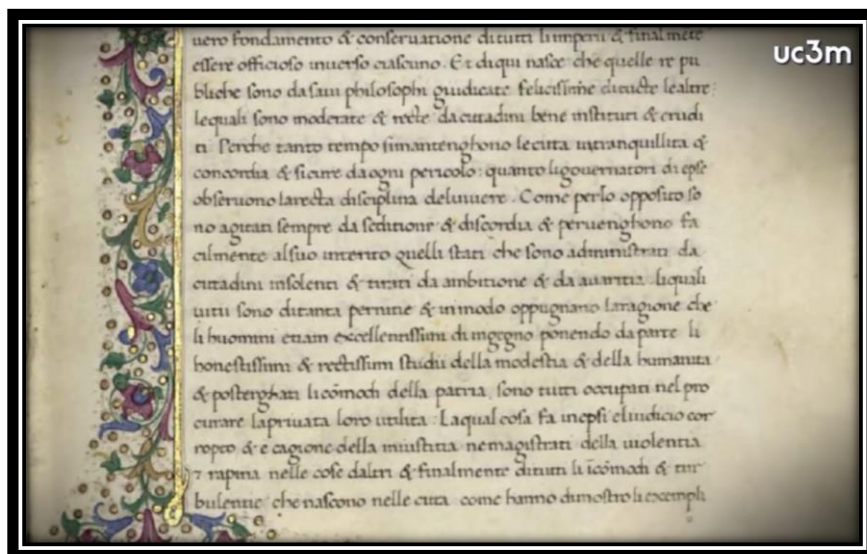 uero fondamento & conseruatione di tutti li imperii & finalmēte
essere officioso inuerso ciascuno. Et di qui nasce che quelle re pu
bliche sono da saui philosophi giudicate felicissime di tucte le altre
le quali sono moderate & recte da cittadini bene instituti & erudi
ti. Perche tanto tempo si mantenghono le citta in tranquillita &
concordia & sicure da ogni pericolo: quanto li gouernatori di epse
obseruono la recta disciplina del uiuere. Come per lo opposito so
no agitati sempre da seditione & discordia & peruenghono fa
cilmente al suo interito quelli stati che sono administrati da
cittadini insolenti & tirati da ambitione & da auaritia li quali
uitii sono di tanta & in modo oppugnano la ragione che
li huomini etiam excellentissimi di ingegno ponendo da parte li
honestissimi & rectissimi studii della modestia & della humanita
& posterghati li cōmodi della patria, sono tutti occupati nel pro
curare la priuata loro utilita. La qual cosa fa in epsi el iudicio cor
ropto & e cagione della iniustitia ne magistrati della uiolentia
⁊ rapina nelle cose daltri & finalmente di tutti li īcōmodi & tur
bulentie che nascono nelle citta come hanno dimostro li exempli
uc3m